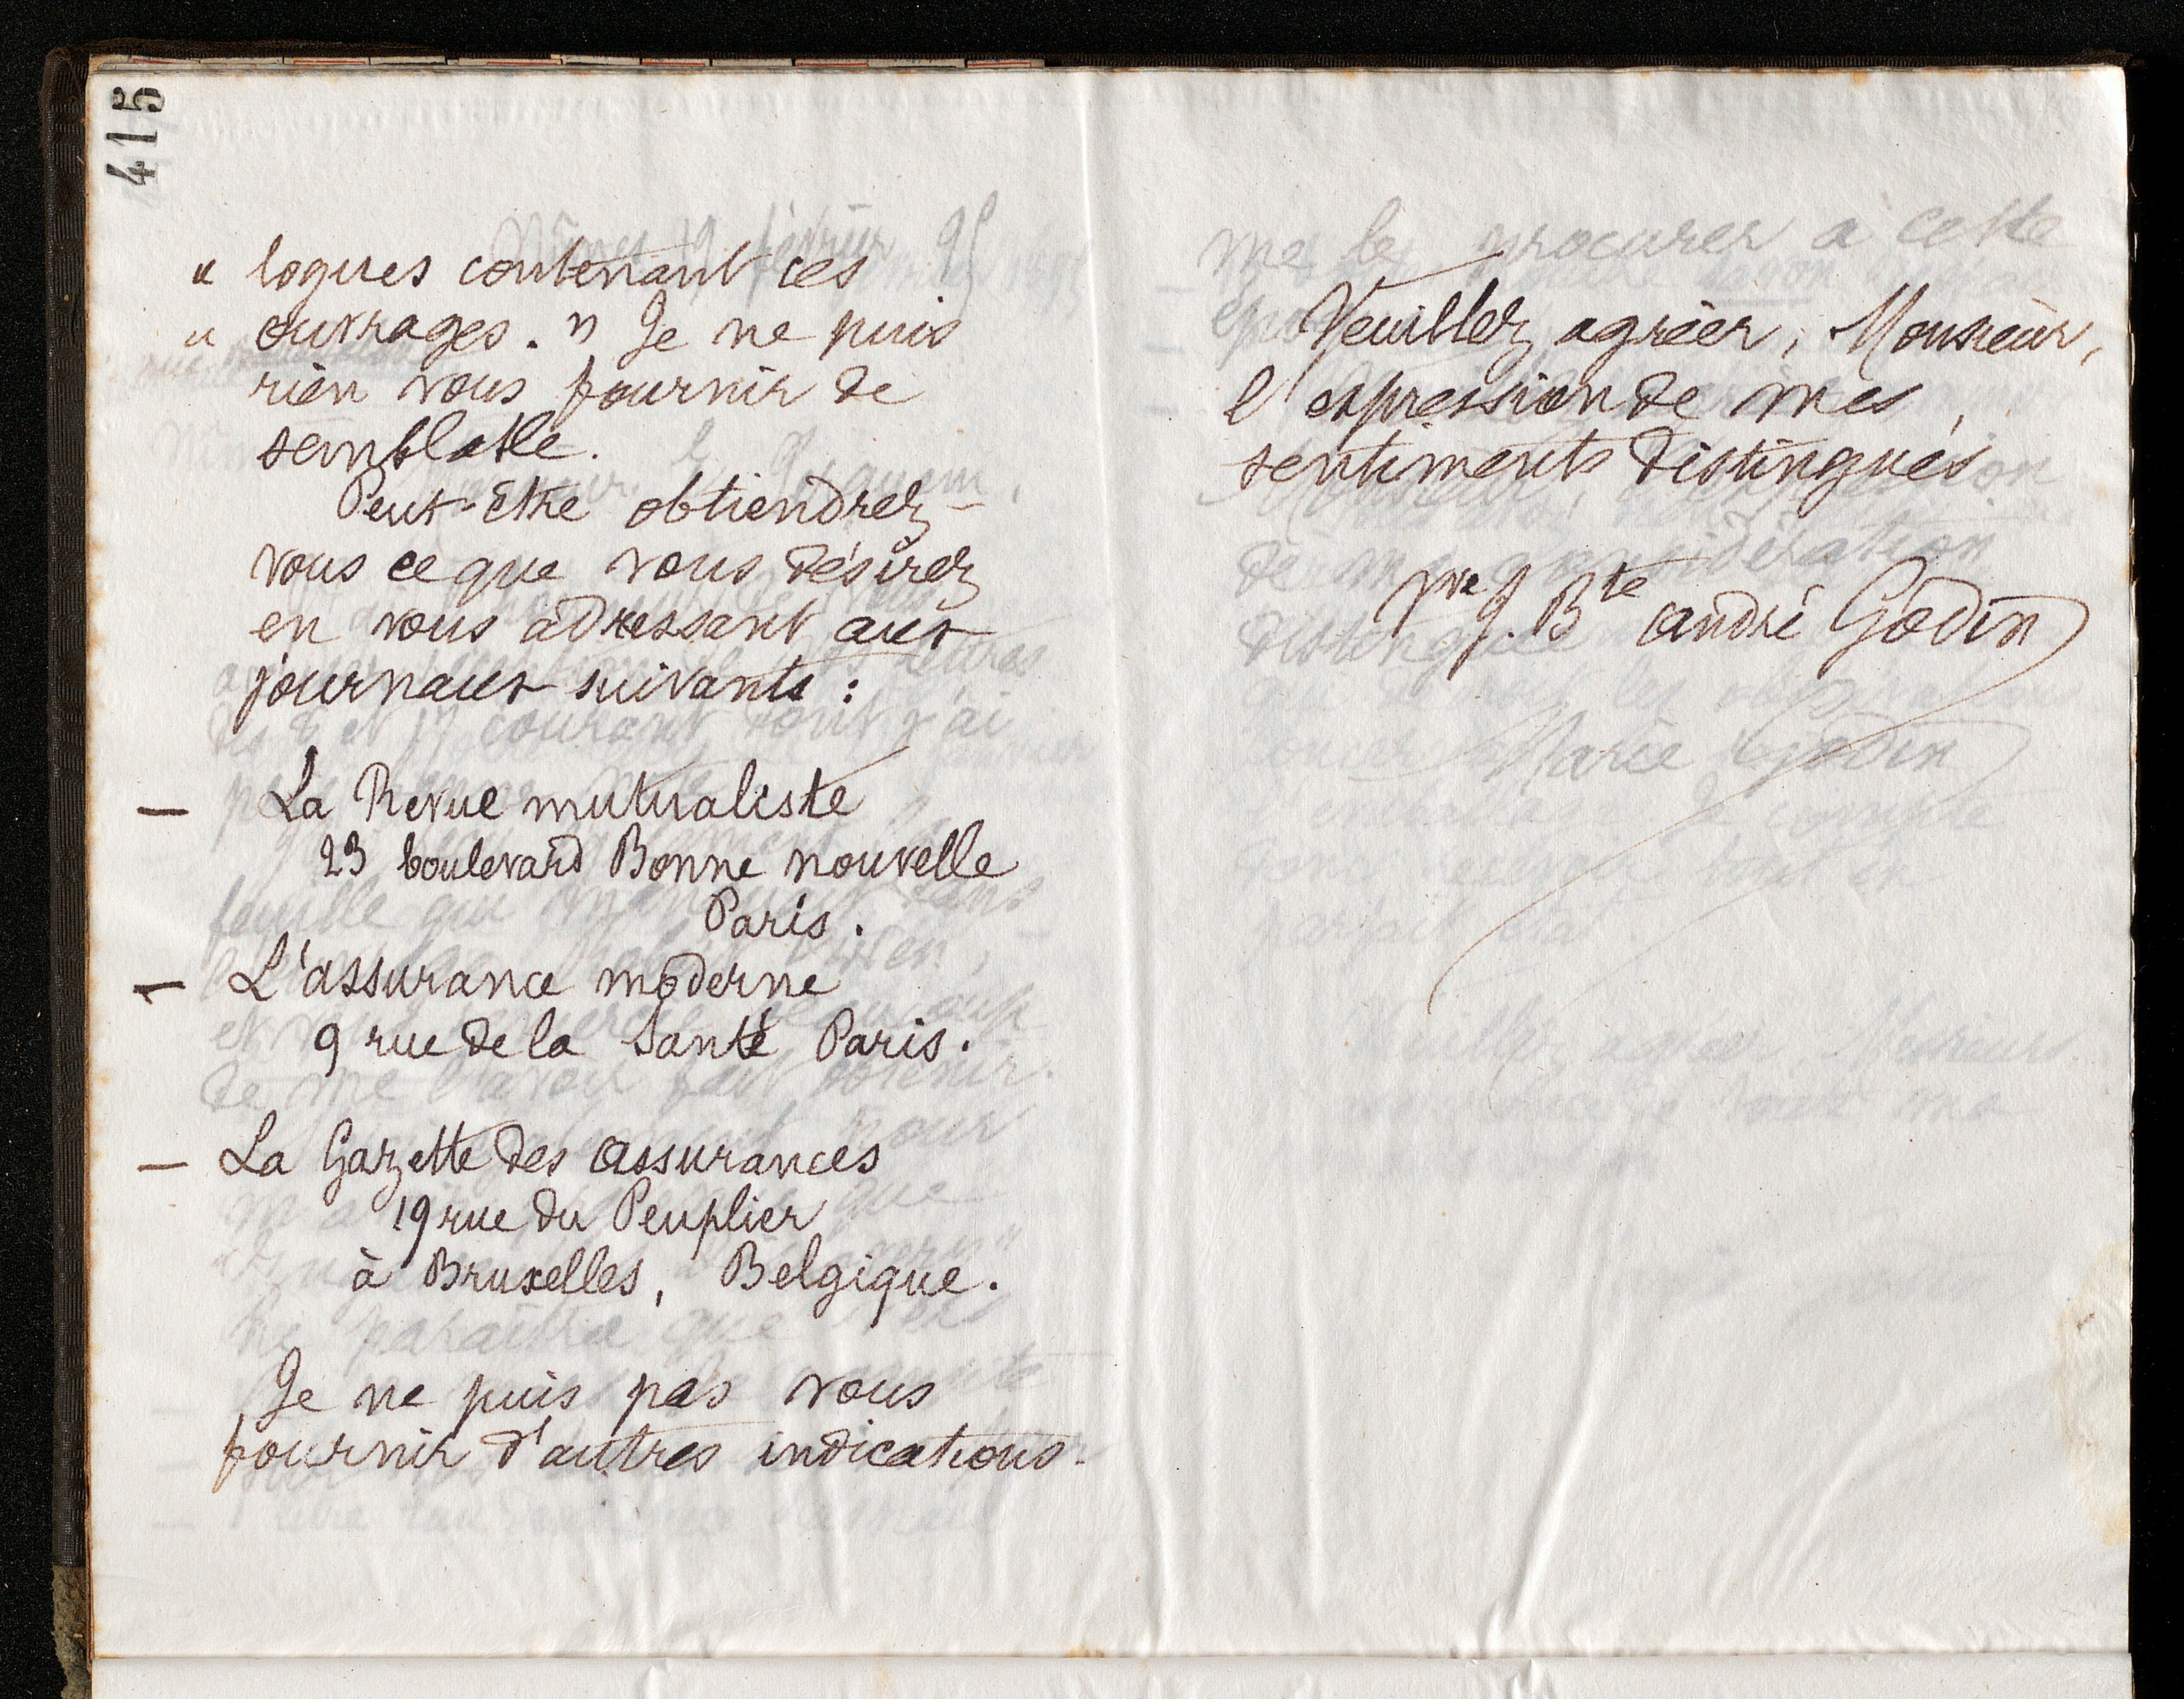 415
« logues contenant ces
« ouvrages. » Je ne puis
rien vous fournir de
semblable.
Peut-être obtiendrez-
vous ce que vous désirez
en vous adressant aux
journaux suivants :
— La Revue mutualiste
23 boulevard Bonne nouvelle
Paris.
— L'assurance moderne
9 rue de la Santé Paris.
— La Gazette des assurances
19 rue du Peuplier
à Bruxelles, Belgique.
Je ne puis pas vous
fournir d'autres indications.
Veuillez agréer, Monsieur,
l'expression de mes
sentiments distingués
Vve J. Bte André Godin